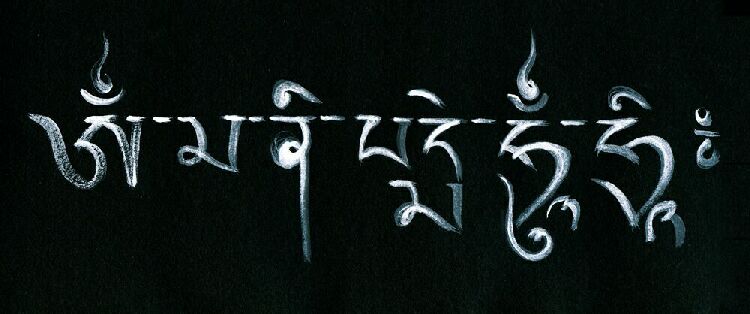 ༀ་མ་ནི་པདྨེ་ཧཱུྃ་ཧྲཱིཿ